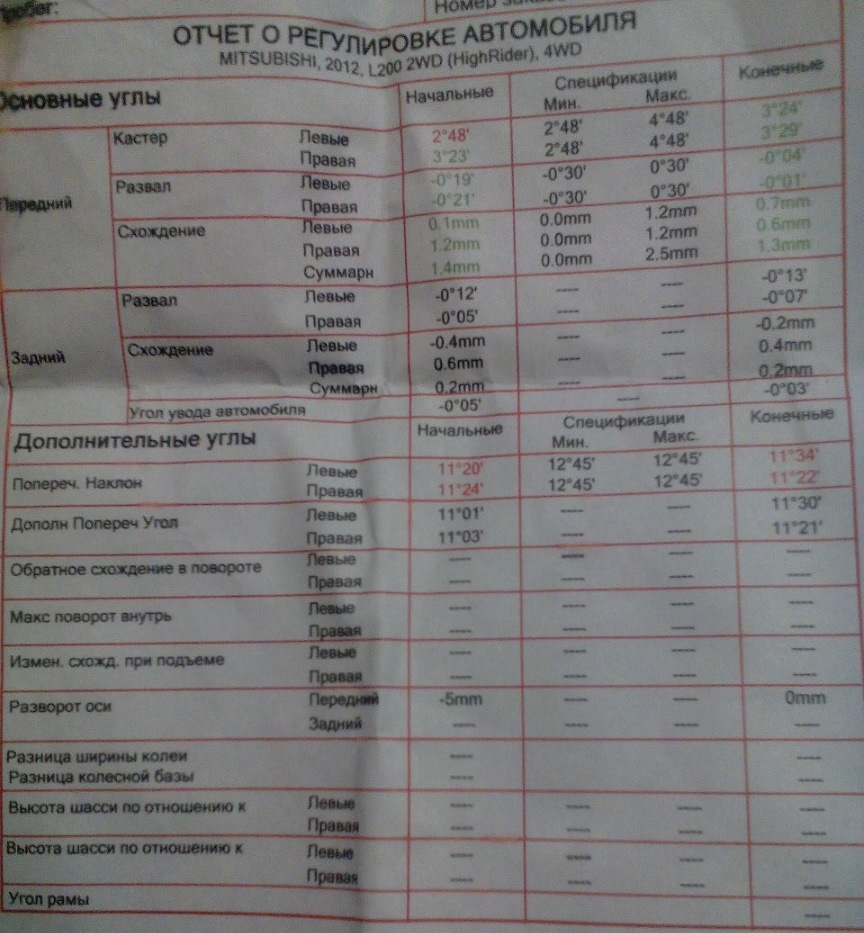 Пробег:
Номер заказ
ОТЧЕТ О РЕГУЛИРОВКЕ АВТОМОБИЛЯ
MITSUBISHI, 2012, L200 2WD (HighRider), 4WD
Основные углы Начальные Спецификации Конечные
Мин. Макс.
Передний Кастер Левые 2°48' 2°48' 4°48' 3°24'
Правая 3°23' 2°48' 4°48' 3°29'
Развал Левые -0°19' -0°30' 0°30' -0°04'
Правая -0°21' -0°30' 0°30' -0°01'
Схождение Левые 0.1mm 0.0mm 1.2mm 0.7mm
Правая 1.2mm 0.0mm 1.2mm 0.6mm
Суммарн 1.4mm 0.0mm 2.5mm 1.3mm
Задний Развал Левые -0°12' ---- ---- -0°13'
Правая -0°05' ---- ---- -0°07'
Схождение Левые -0.4mm ---- ---- -0.2mm
Правая 0.6mm ---- ---- 0.4mm
Суммарн 0.2mm ---- ---- 0.2mm
Угол увода автомобиля -0°05' ---- -0°03'
Дополнительные углы Начальные Спецификации Конечные
Мин. Макс.
Попереч. Наклон Левые 11°20' 12°45' 12°45' 11°34'
Правая 11°24' 12°45' 12°45' 11°22'
Дополн Попереч Угол Левые 11°01' ---- ---- 11°30'
Правая 11°03' ---- ---- 11°21'
Обратное схождение в повороте Левые ---- ---- ---- ----
Правая ---- ---- ---- ----
Макс поворот внутрь Левые ---- ---- ---- ----
Правая ---- ---- ---- ----
Измен. схожд. при подъеме Левые ---- ---- ---- ----
Правая ---- ---- ---- ----
Разворот оси Передний -5mm ---- ---- 0mm
Задний ---- ---- ---- ----
Разница ширины колеи ---- ----
Разница колесной базы ---- ----
Высота шасси по отношению к Левые ---- ---- ---- ----
Правая ---- ---- ---- ----
Высота шасси по отношению к Левые ---- ---- ---- ----
Правая ---- ---- ---- ----
Угол рамы ----